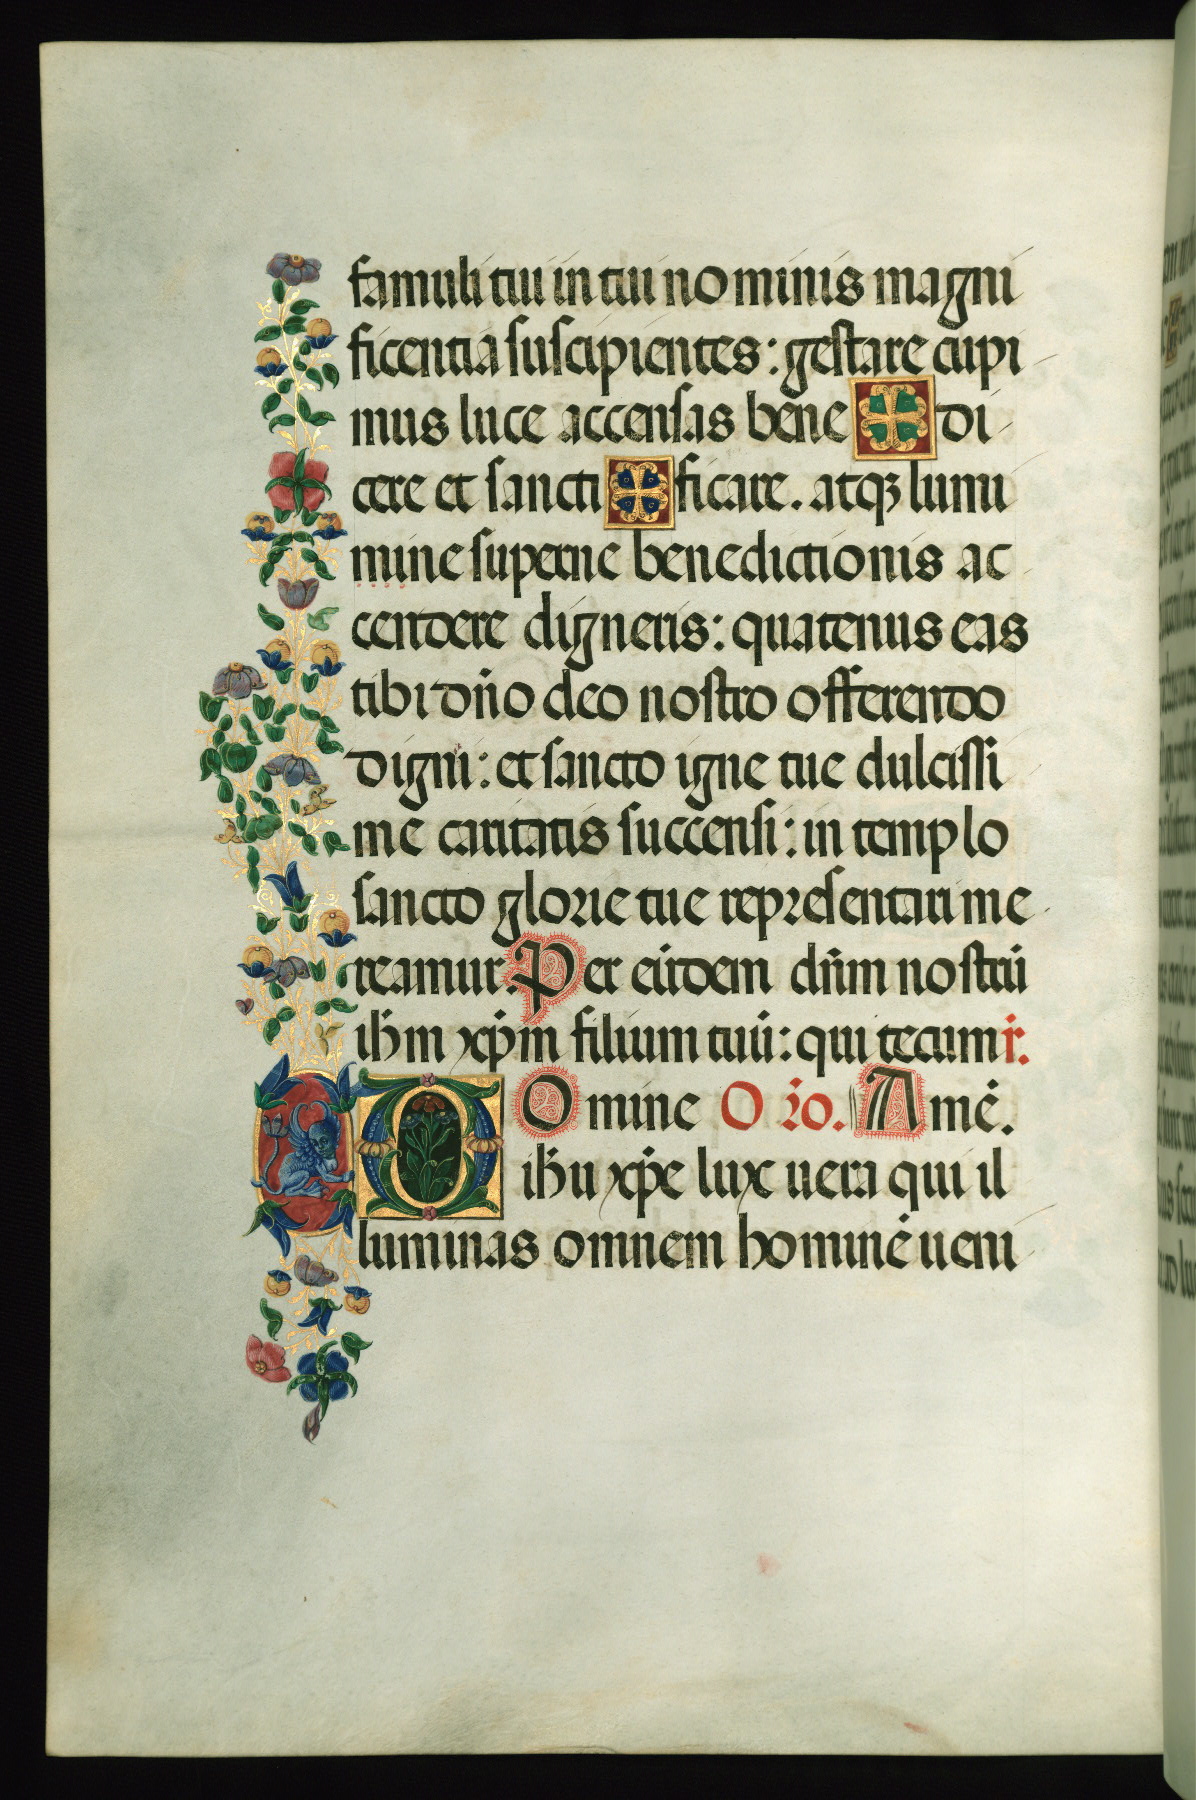 famuli tui in tui nominis magni
ficentia suscipientes: gestare cupi
mus luce accensas bene ✠ di
cere et sancti ✠ ficare. atqꝫ lumi
mine superne benedictionis ac
cendere digneris: quatenus eas
tibi dño deo nostro offerendo
digni: et sancto igne tue dulcissi
me caritatis succensi: in templo
sancto glorie tue representari me
reamur. Per eūdem dñm nostrū
ihm̄ xp̄m filium tuū: qui tecum i̇.
Omine Orō. Amē.
D ihū xp̄e lux uera qui il
luminas omnem hominē ueni